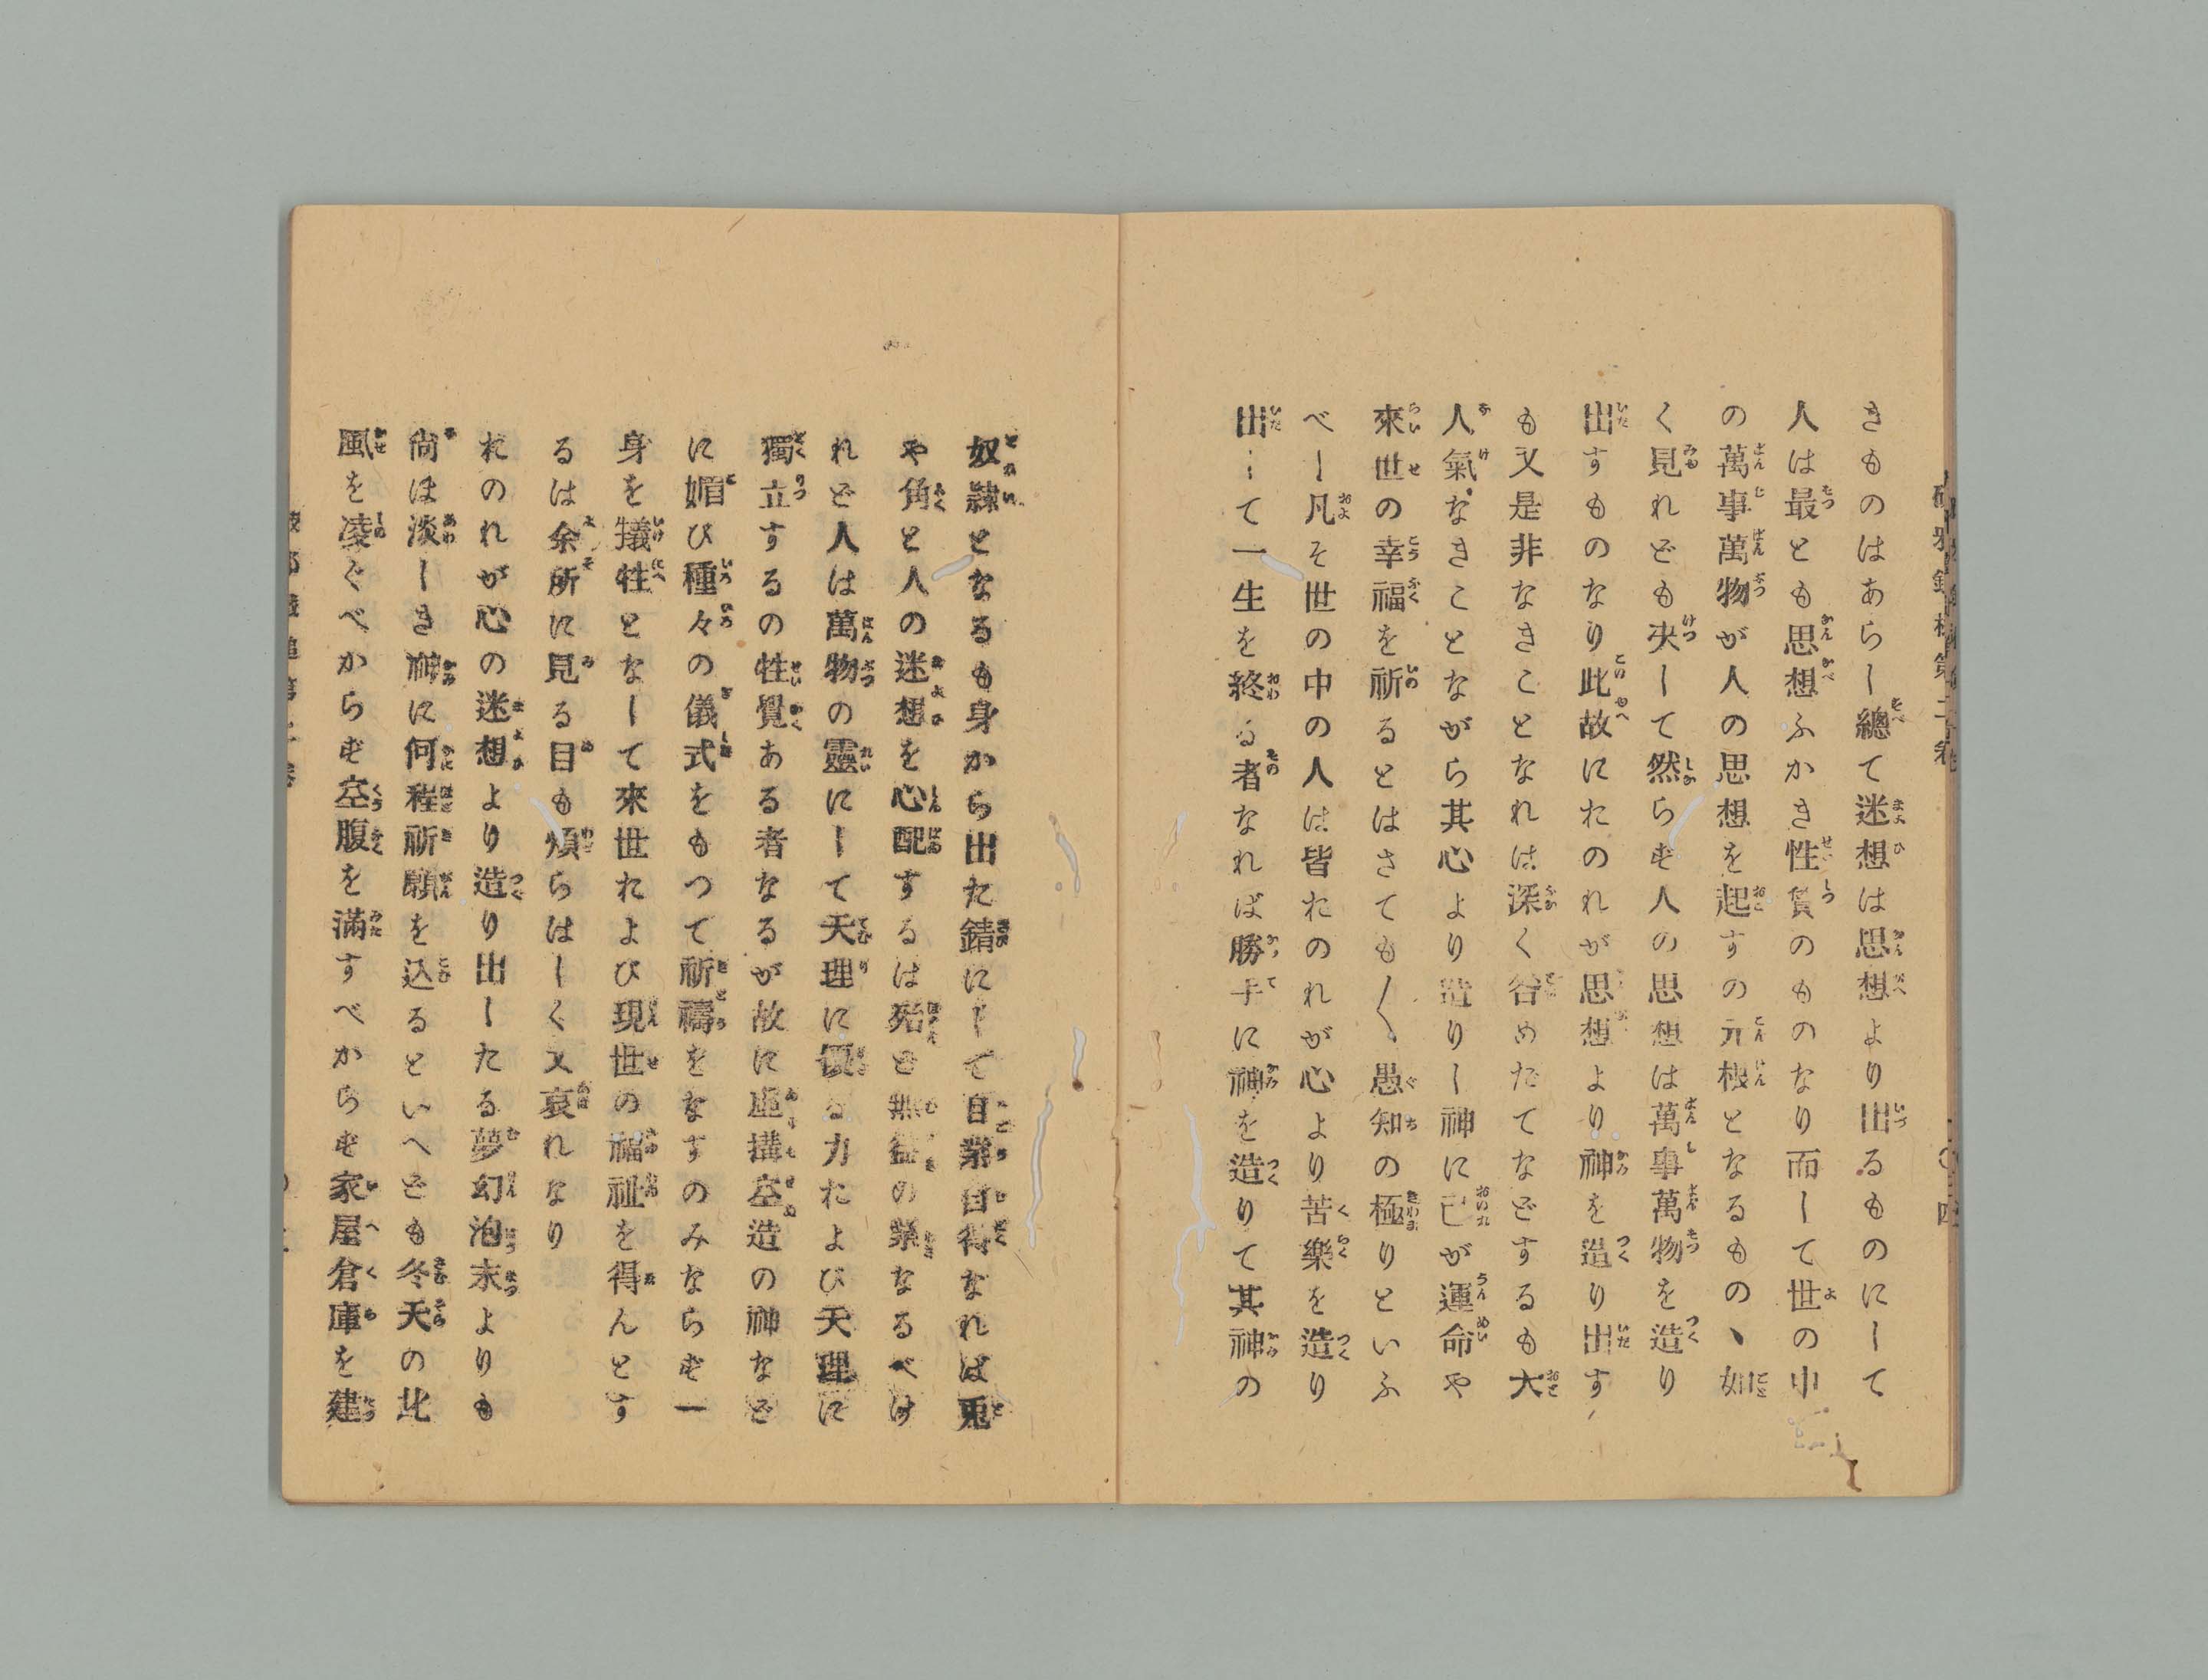 きものはあらし總て迷想は思想より出るものにして
人は最とも思想ふかき性質のものなり而して世の中
の萬事萬物が人の思想を起すの元根となるものヽ如
く見れども决して然らず人の思想は萬事萬物を造り
出すものなり此故におのれが思想より神を造り出す
も又是非なきことなれは深く咎めたてなどするも大
人氣なきことながら其心より造りし神に己が運命や
來世の幸福を祈るとはさても〱愚知の極りといふ
べし凡そ世の中の人は皆おのれが心より苦樂を造り
出して一生を終る者なれば勝手に神を造りて其神の
奴隷となるも身から出た錆にして自業自得なれば兎
や角と人の迷想を心配するは殆ど無益の業なるべけ
れど人は萬物の靈にして天理に優る力および天理に
獨立するの性覺ある者なるが故に虛搆空造の神など
に媚び種々の儀式をもつて祈禱をなすのみならず一
身を犧牲となして來世および現世の福祉を得んとす
るは余所に見る目も煩らはしく又哀れなり
おのれが心の迷想より造り出したる夢幻泡末よりも
尙ほ淡しき神に何程祈願を込るといへども冬天の北
風を凌ぐべからず空腹を滿すべからず家屋倉庫を建